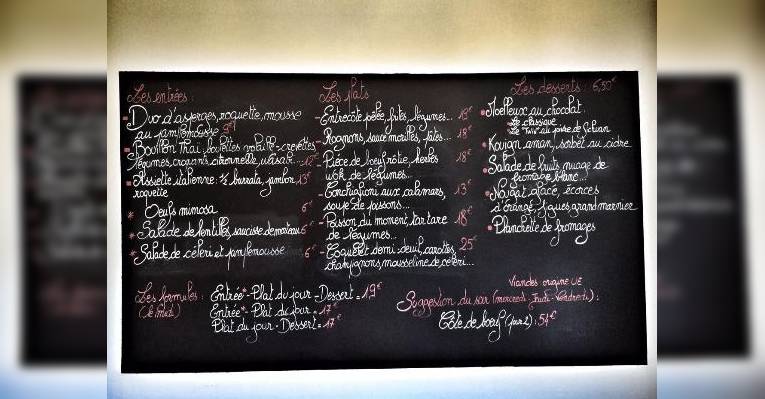 Les entrées :
- Duo d'asperges, roquette, mousse
au pamplemousse 9€
- Bouillon Thaï, boulettes volaille-crevettes
légumes, croquant citronnelle, wasabi... 12€
- Assiette italienne : ½ burrata, jambon, 13€
roquette
* Oeufs mimosa 6€
* Salade de lentilles, saucisse de morteau 6€
* Salade de céleri et pamplemousse 6€
Les plats
- Entrecôte poêlée, frites, légumes... 19€
- Rognons, sauce morilles, pâtes... 18€
- Pièce de boeuf rôtie, herbes 18€
wok de légumes...
- Conchiglioni aux calamars, 13€
soupe de poissons...
- Poisson du moment, tartare 18€
de légumes...
- Coquelet demi-deuil, carottes, 25€
champignons, mousseline de céleri...
Les desserts : 6,50€
- Moelleux au chocolat :
le classique
le "Twix" au poivre de Sichuan
- Kouign aman, sorbet au cidre
- Salade de fruits, nuage de
fromage blanc...
- Nougat glacé, écorces
d'orange, figues, grand marnier
- Planchette de fromages
Les formules : Entrée* - Plat du jour - Dessert = 19€
(le midi) Entrée* - Plat du jour = 17€
Plat du jour - Dessert = 17€
Viandes origine UE
Suggestion du soir (mercredi - Jeudi - Vendredi) :
Côte de boeuf (pour 2) : 54€